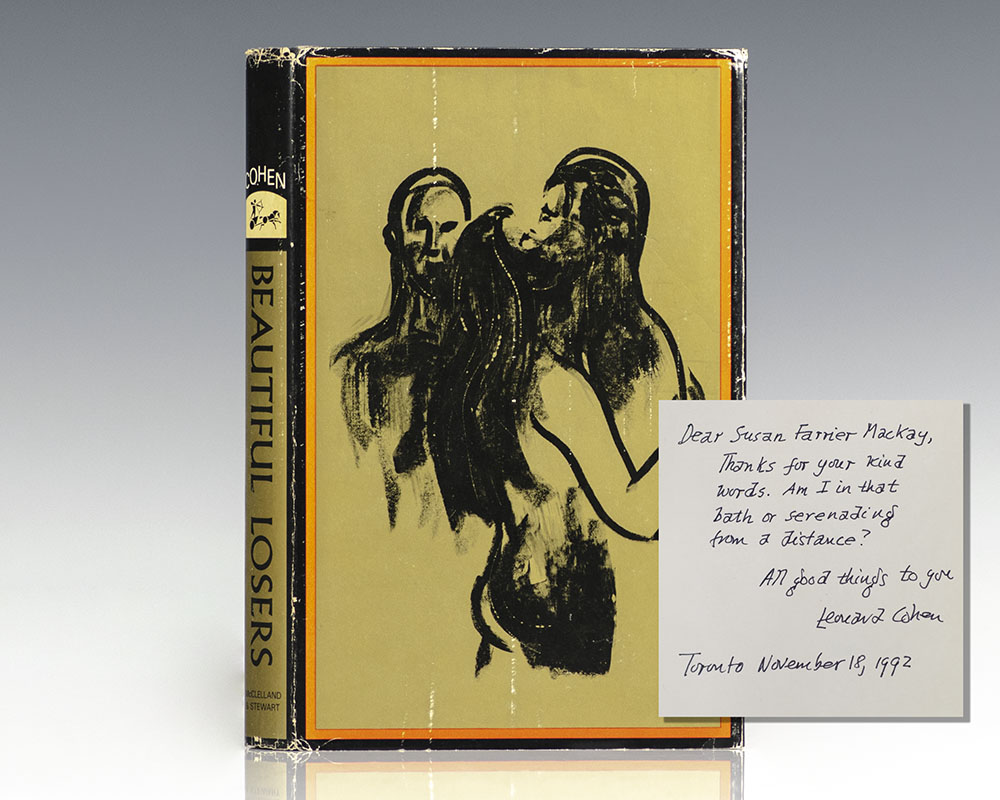 COHEN
BEAUTIFUL LOSERS
McCLELLAND
& STEWART
Dear Susan Farrier Mackay,
Thanks for your kind
words. Am I in that
bath or serenading
from a distance?
All good things to you
Leonard Cohen
Toronto November 18, 1992